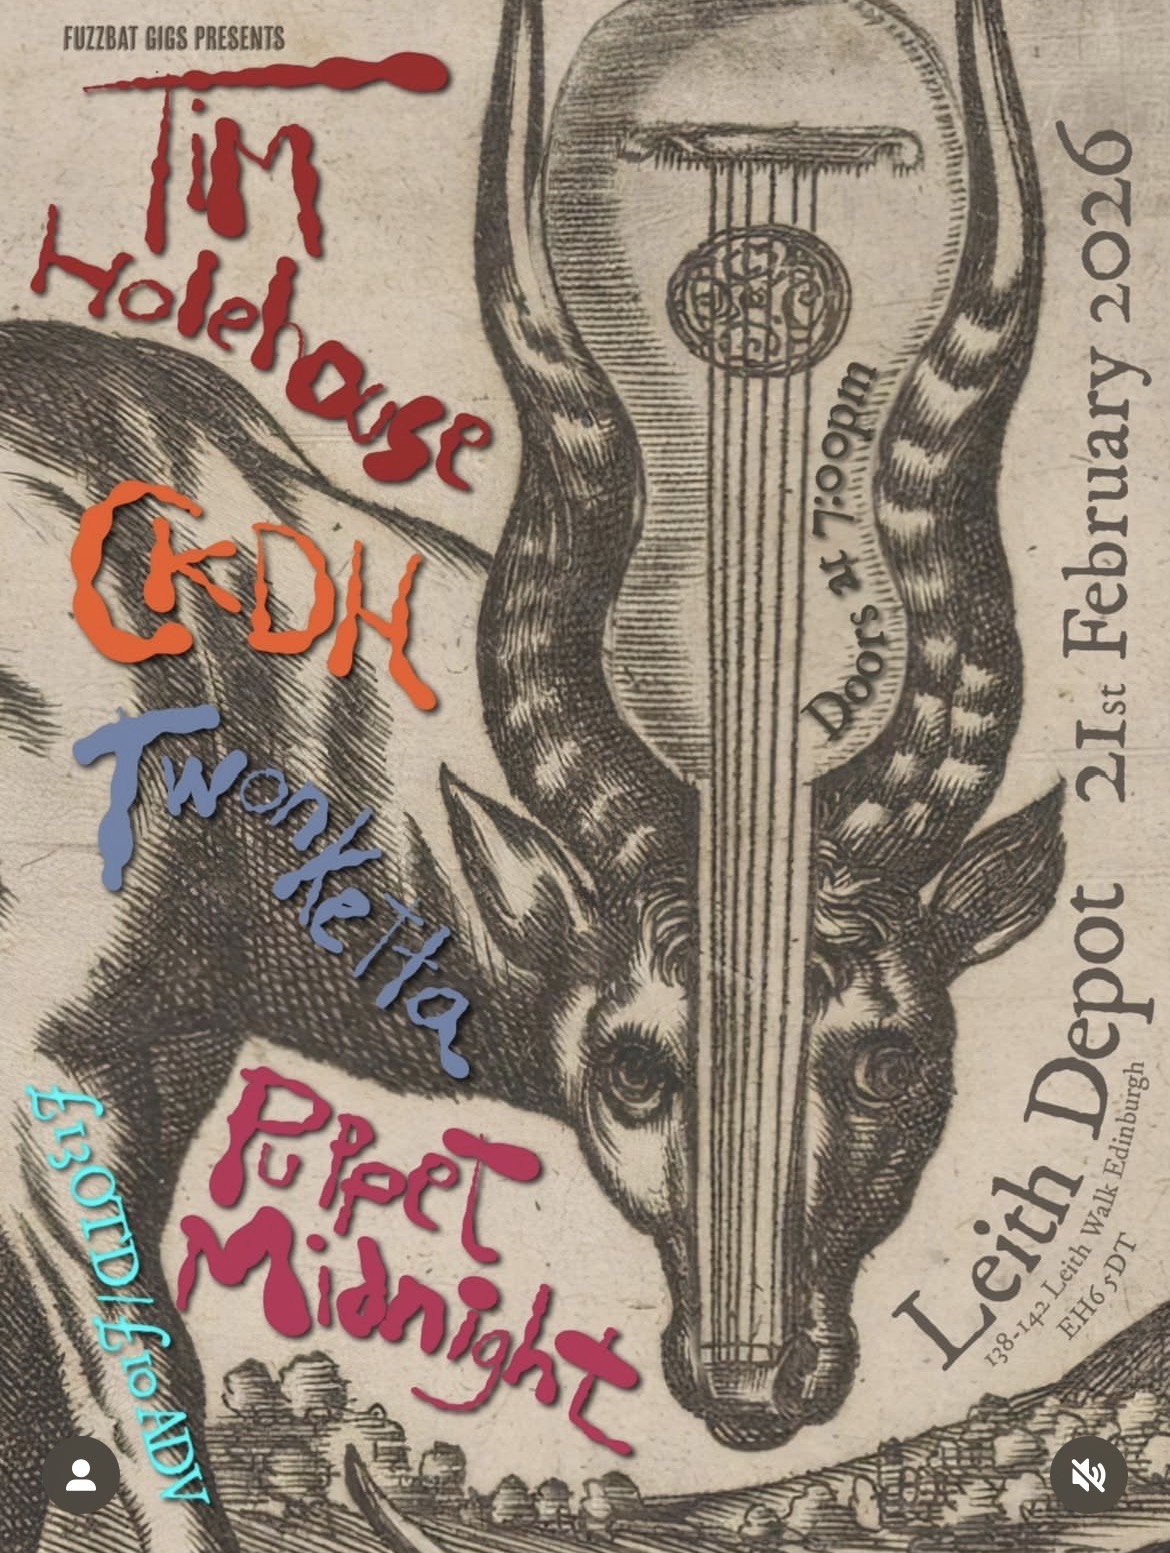 FUZZBAT GIGS PRESENTS
TiM
Holehouse
CKDH
Twonketta
Puppet
Midnight
£13OTD/£10 ADV
Doors at 7:00pm
Leith Depot 21st February 2026
138-142 Leith Walk Edinburgh
EH6 5DT